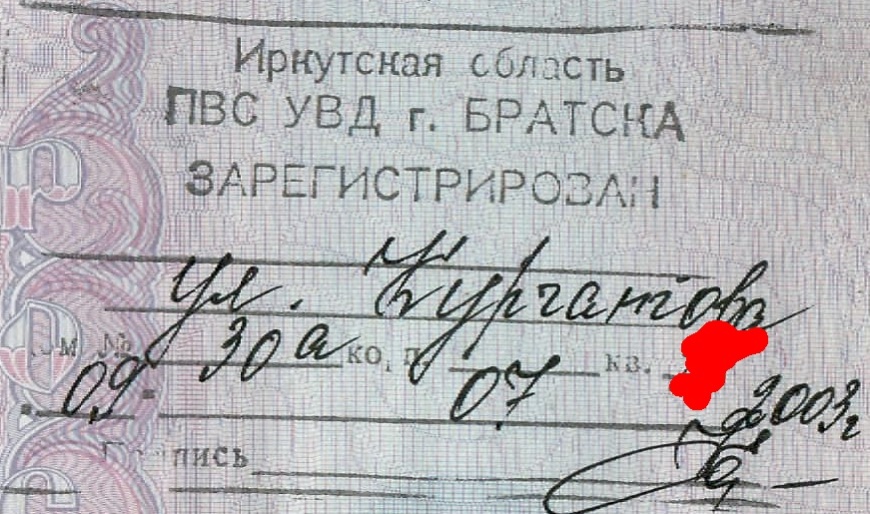 Иркутская область
ПВС УВД г. БРАТСКА
ЗАРЕГИСТРИРОВАН
ул. Курчатова
дом № 30а корп. кв.
09. 07 2003г
Подпись